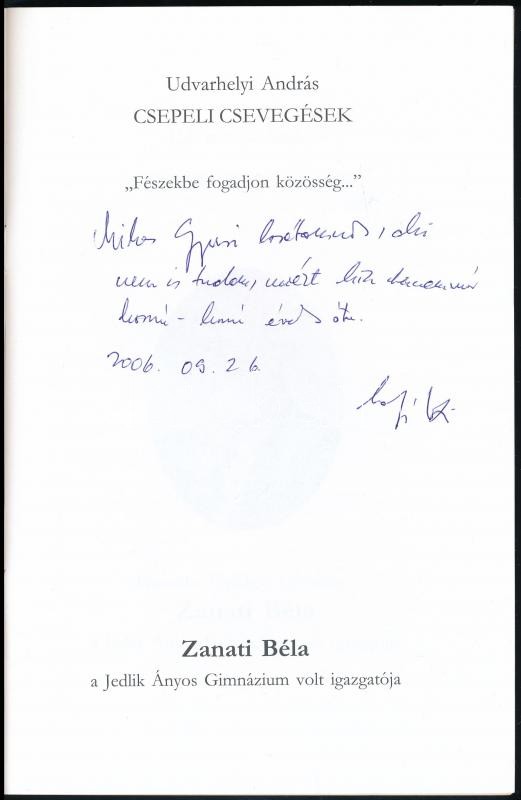 Udvarhelyi András
CSEPELI CSEVEGÉSEK
„Fészekbe fogadjon közösség...”
Gyuri barátomnak, aki
nem is tudom, miért
évek óta.
2006. 09. 26.
Zanati Béla
a Jedlik Ányos Gimnázium volt igazgatója